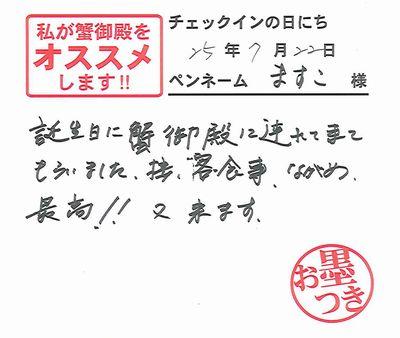 私が蟹御殿を
オススメ
します!!
チェックインの日にち
25年7月22日
ペンネーム ますこ 様
誕生日に蟹御殿に連れて来て
もらいました、接客食事、ながめ、
最高!! 又来ます。
お墨つき